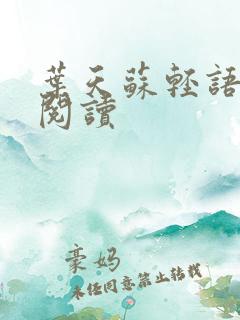 葉天蘇輕語
閱讀
豪媽
未经同意禁止转载